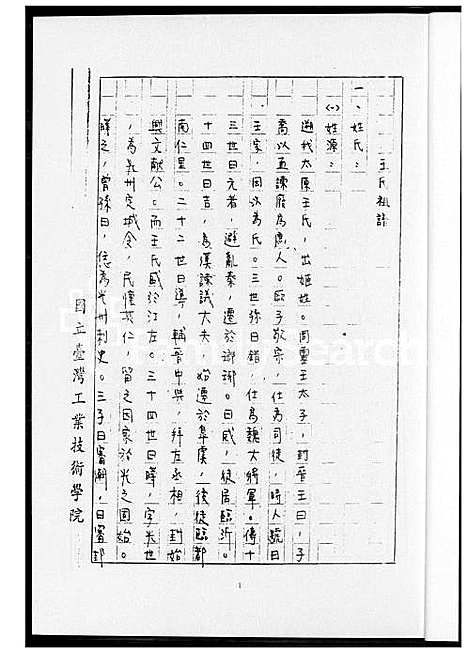 王氏祖譜
一、姓氏：
(一)姓源：
遡我太原王氏，出姬姓。周靈王太子，封晉王曰，子
喬以直諫廢為庶人。孫子敬宗，仕為司徒，時人號曰
王家，因以為氏。三世孫曰錯，仕為魏大將軍。傳十
三世曰元者，避亂秦，遷於瑯琊。曰威，徙居臨沂。
十四世曰吉，為漢諫議大夫 始遷於皐虞，後徙臨都
南仁里。二十二世曰導，輔晉中興，拜左丞相，封始
興文獻公。而王氏盛於江左。三十四世曰曄，字光世
，為光州定城令，民懷其仁，留之因家於光之固始。
曄之，曾孫曰，恁為光州刺史。三子曰審潮，曰審邽
國立臺灣工業技術學院
1